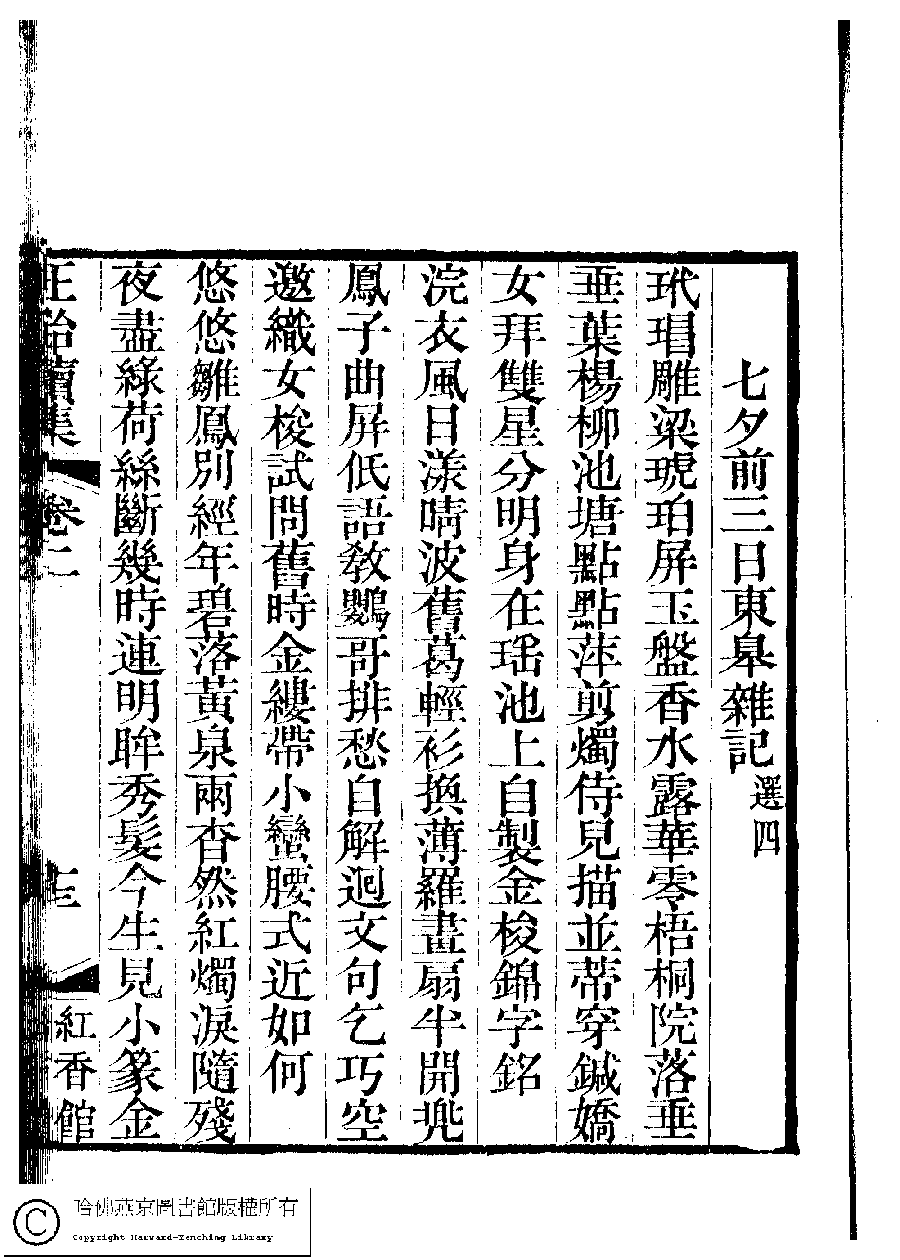 七夕前三日東皐雜記選四
玳瑁雕梁琥珀屏玉盤香水露華零梧桐院落垂
垂葉楊柳池塘點點萍剪燭侍兒描並蒂穿鍼嬌
女拜雙星分明身在瑤池上自製金梭錦字銘
浣衣風日漾晴波舊葛輕衫換薄羅畫扇半開兜
鳳子曲屏低語敎鸚哥排愁自解迴文句乞巧空
邀織女梭試問舊時金縷帶小蠻腰式近如何
悠悠雛鳳別經年碧落黃泉兩杳然紅燭淚隨殘
夜盡綠荷絲斷幾時連明眸秀髮今生見小篆金
續集
卷二
紅香館
哈佛燕京圖書館版權所有
Copyright Harvard-Yenching Library